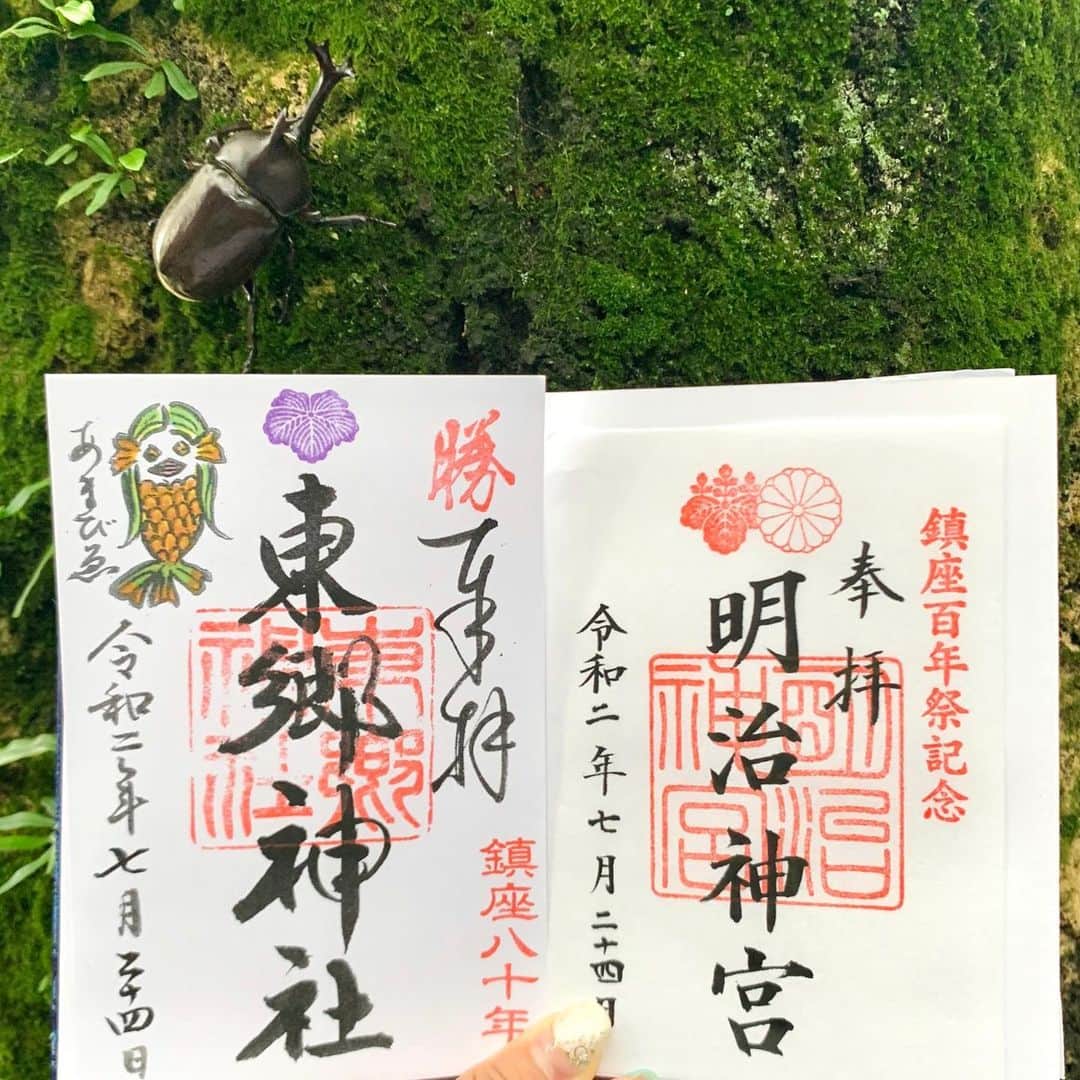 勝
奉拝
鎮座八十年
東郷神社
東郷神社
あまびゑ
令和二年七月二十四日
鎮座百年祭記念
奉拝
明治神宮
明治神宮
令和二年七月二十四日